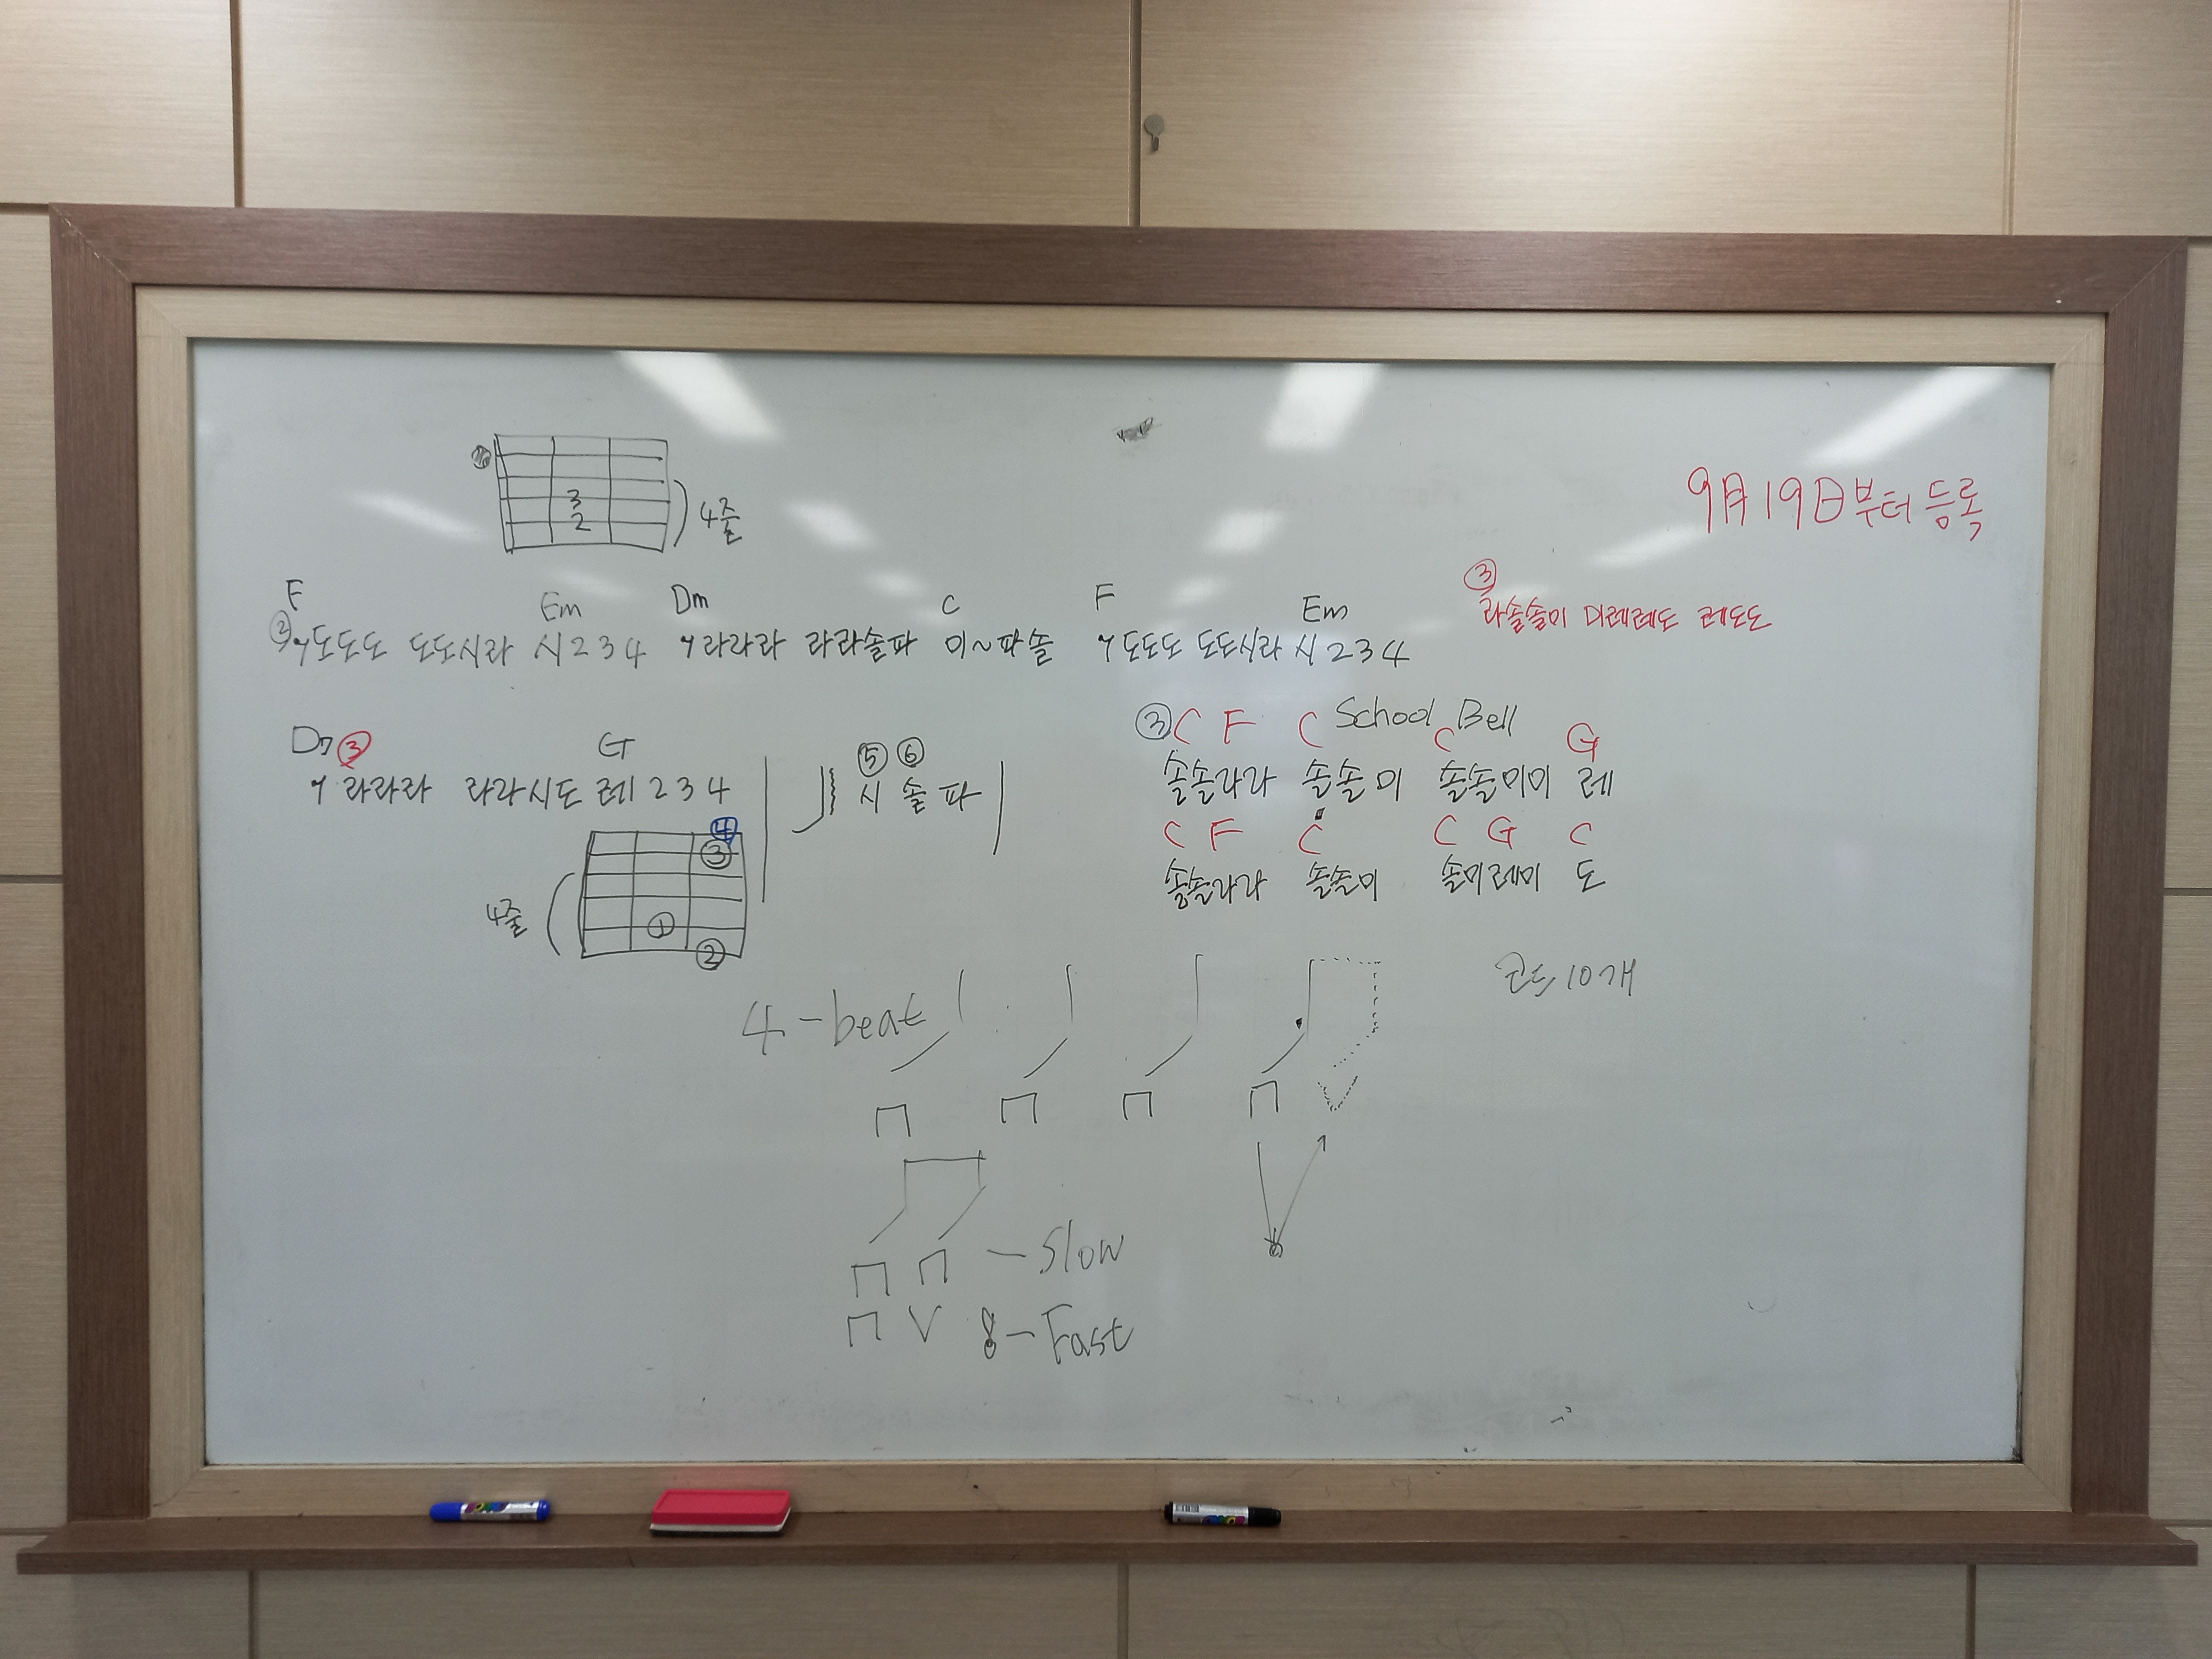 3
2
4줄
9月19日부터 등록
F Em Dm C F Em
③ 도도도 도도시라 시 2 3 4 라라라 라라솔파 미~파솔 도도도 도도시라 시 2 3 4
③
라솔솔미 미레레도 레도도
D7 ③ G
라라라 라라시도 레 2 3 4
⑤ ⑥
시 솔 파
4줄
④
③
①
②
③ C F C School Bell C G
솔솔라라 솔솔미 솔솔미미 레
C F C C G C
솔솔라라 솔솔미 솔미레미 도
코드 10개
4-beat
П П П П V
П П - Slow
П V 8- Fast